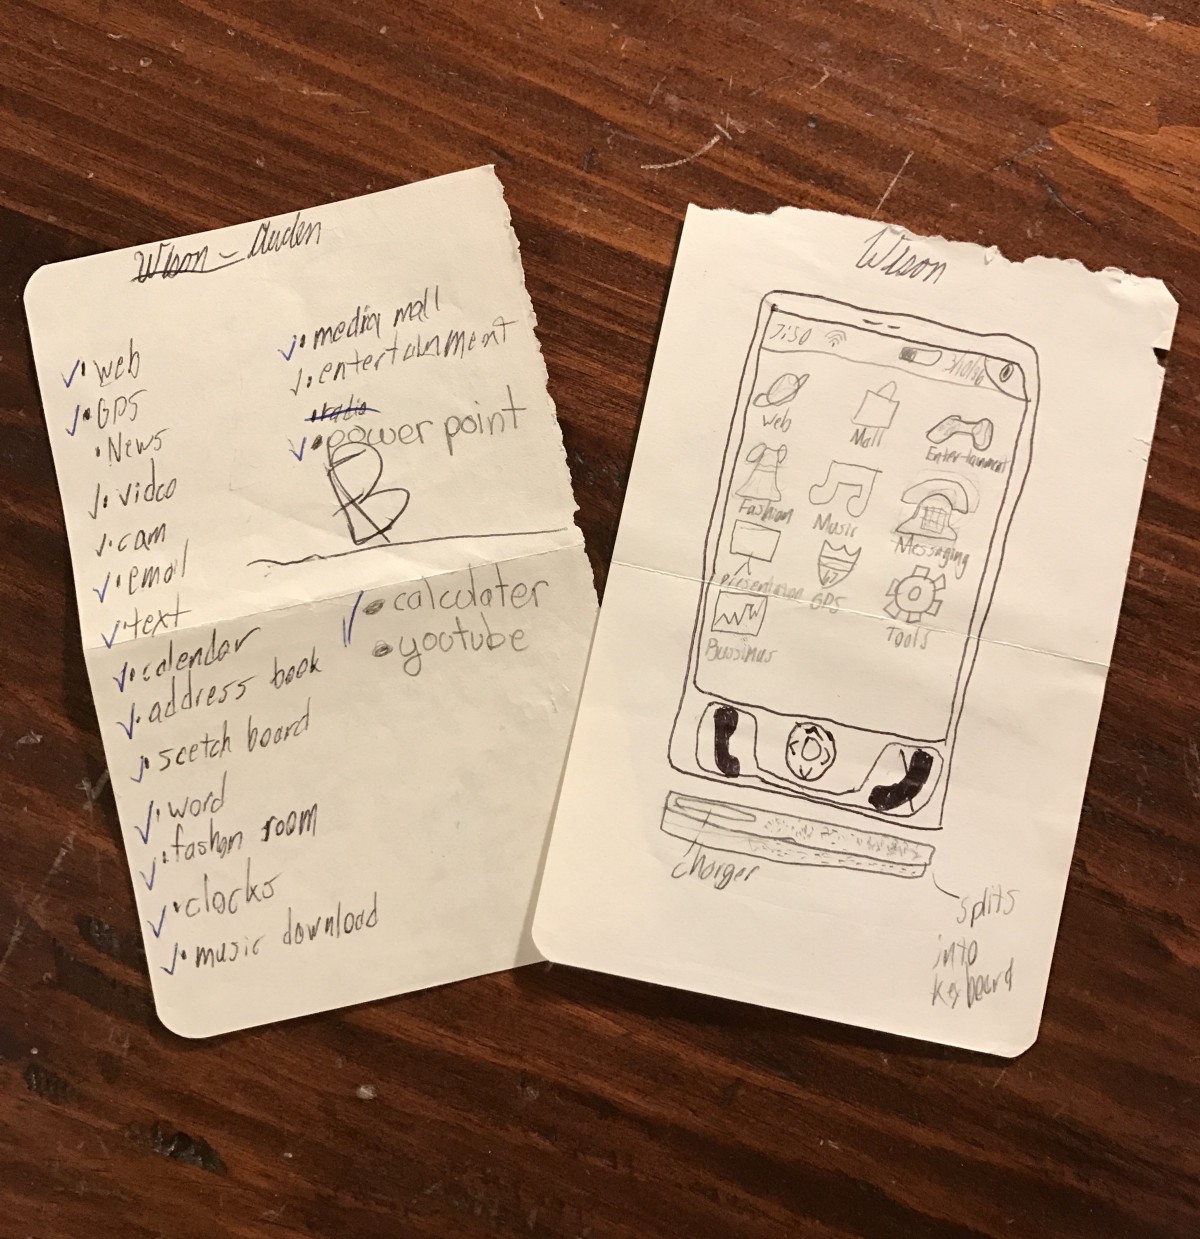 Wison - Auden
web
GPS
News
video
cam
email
text
calendar
address book
scetch board
word
fashon room
clocks
music download
media mall
entertainment
radio
power point
B
calculater
yootube
Wison
7:50
web
Mall
Entertainment
Fashion
Music
Messaging
Presentation
GPS
Tools
Bussinus
charger
splits
into
keyboard